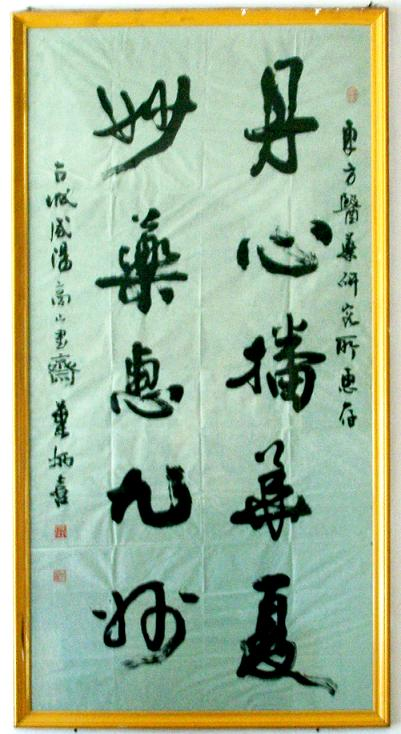 東方醫藥研究所惠存
丹心播華夏
妙藥惠九州
古城咸陽高山書齋 炳喜